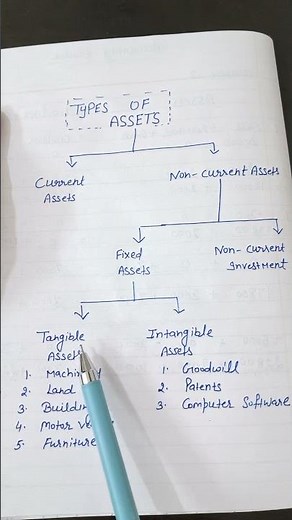 TYPES OF
ASSETS
Current
Assets
Non-current Assets
Fixed
Assets
Non-current
Investment
Tangible
Assets
1. Machinery
2. Land
3. Building
4. Motor
5. Furniture
Intangible
Assets
1. Goodwill
2. Patents
3. Computer Software